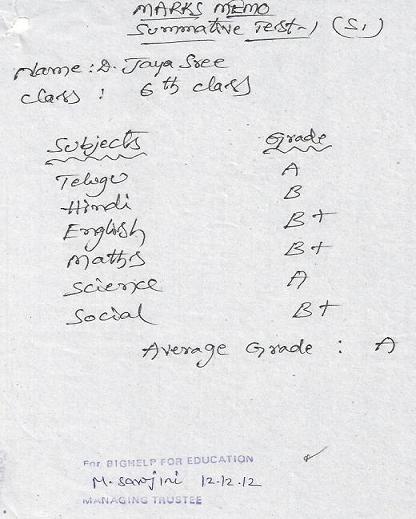 MARKS MEMO
Summative Test-1 (S1)
Name : D. Jaya Sree
class : 6th class
Subjects Grade
Telugu A
Hindi B
English B+
Maths B+
Science A
Social B+
Average Grade : A
For BIGHELP FOR EDUCATION
M. Sarojini 12.12.12
MANAGING TRUSTEE